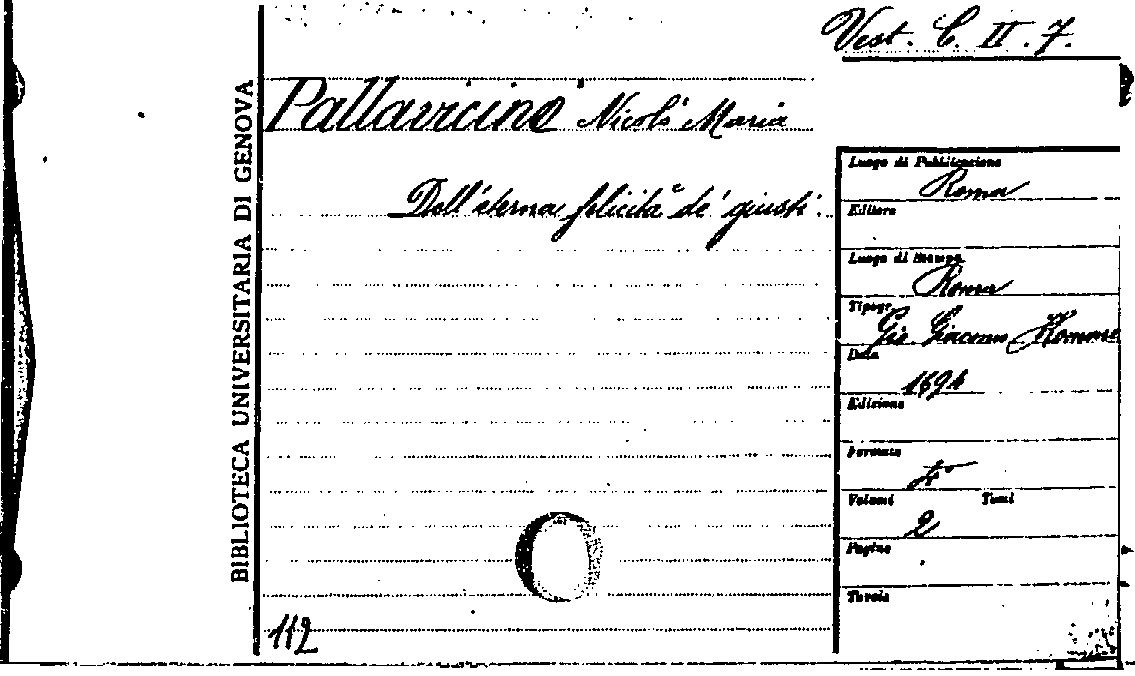 Vest. C. II. 7.
BIBLIOTECA UNIVERSITARIA DI GENOVA
Pallavicino Nicolò Maria
Dell'eterna felicità de' giusti.
Luogo di Pubblicazione
Roma
Editore
Luogo di Stampa
Roma
Tipogr.
Gio. Giacomo
Data
1694
Edizione
Formato
4°
Volumi Tomi
2
Pagine
Tavole
112